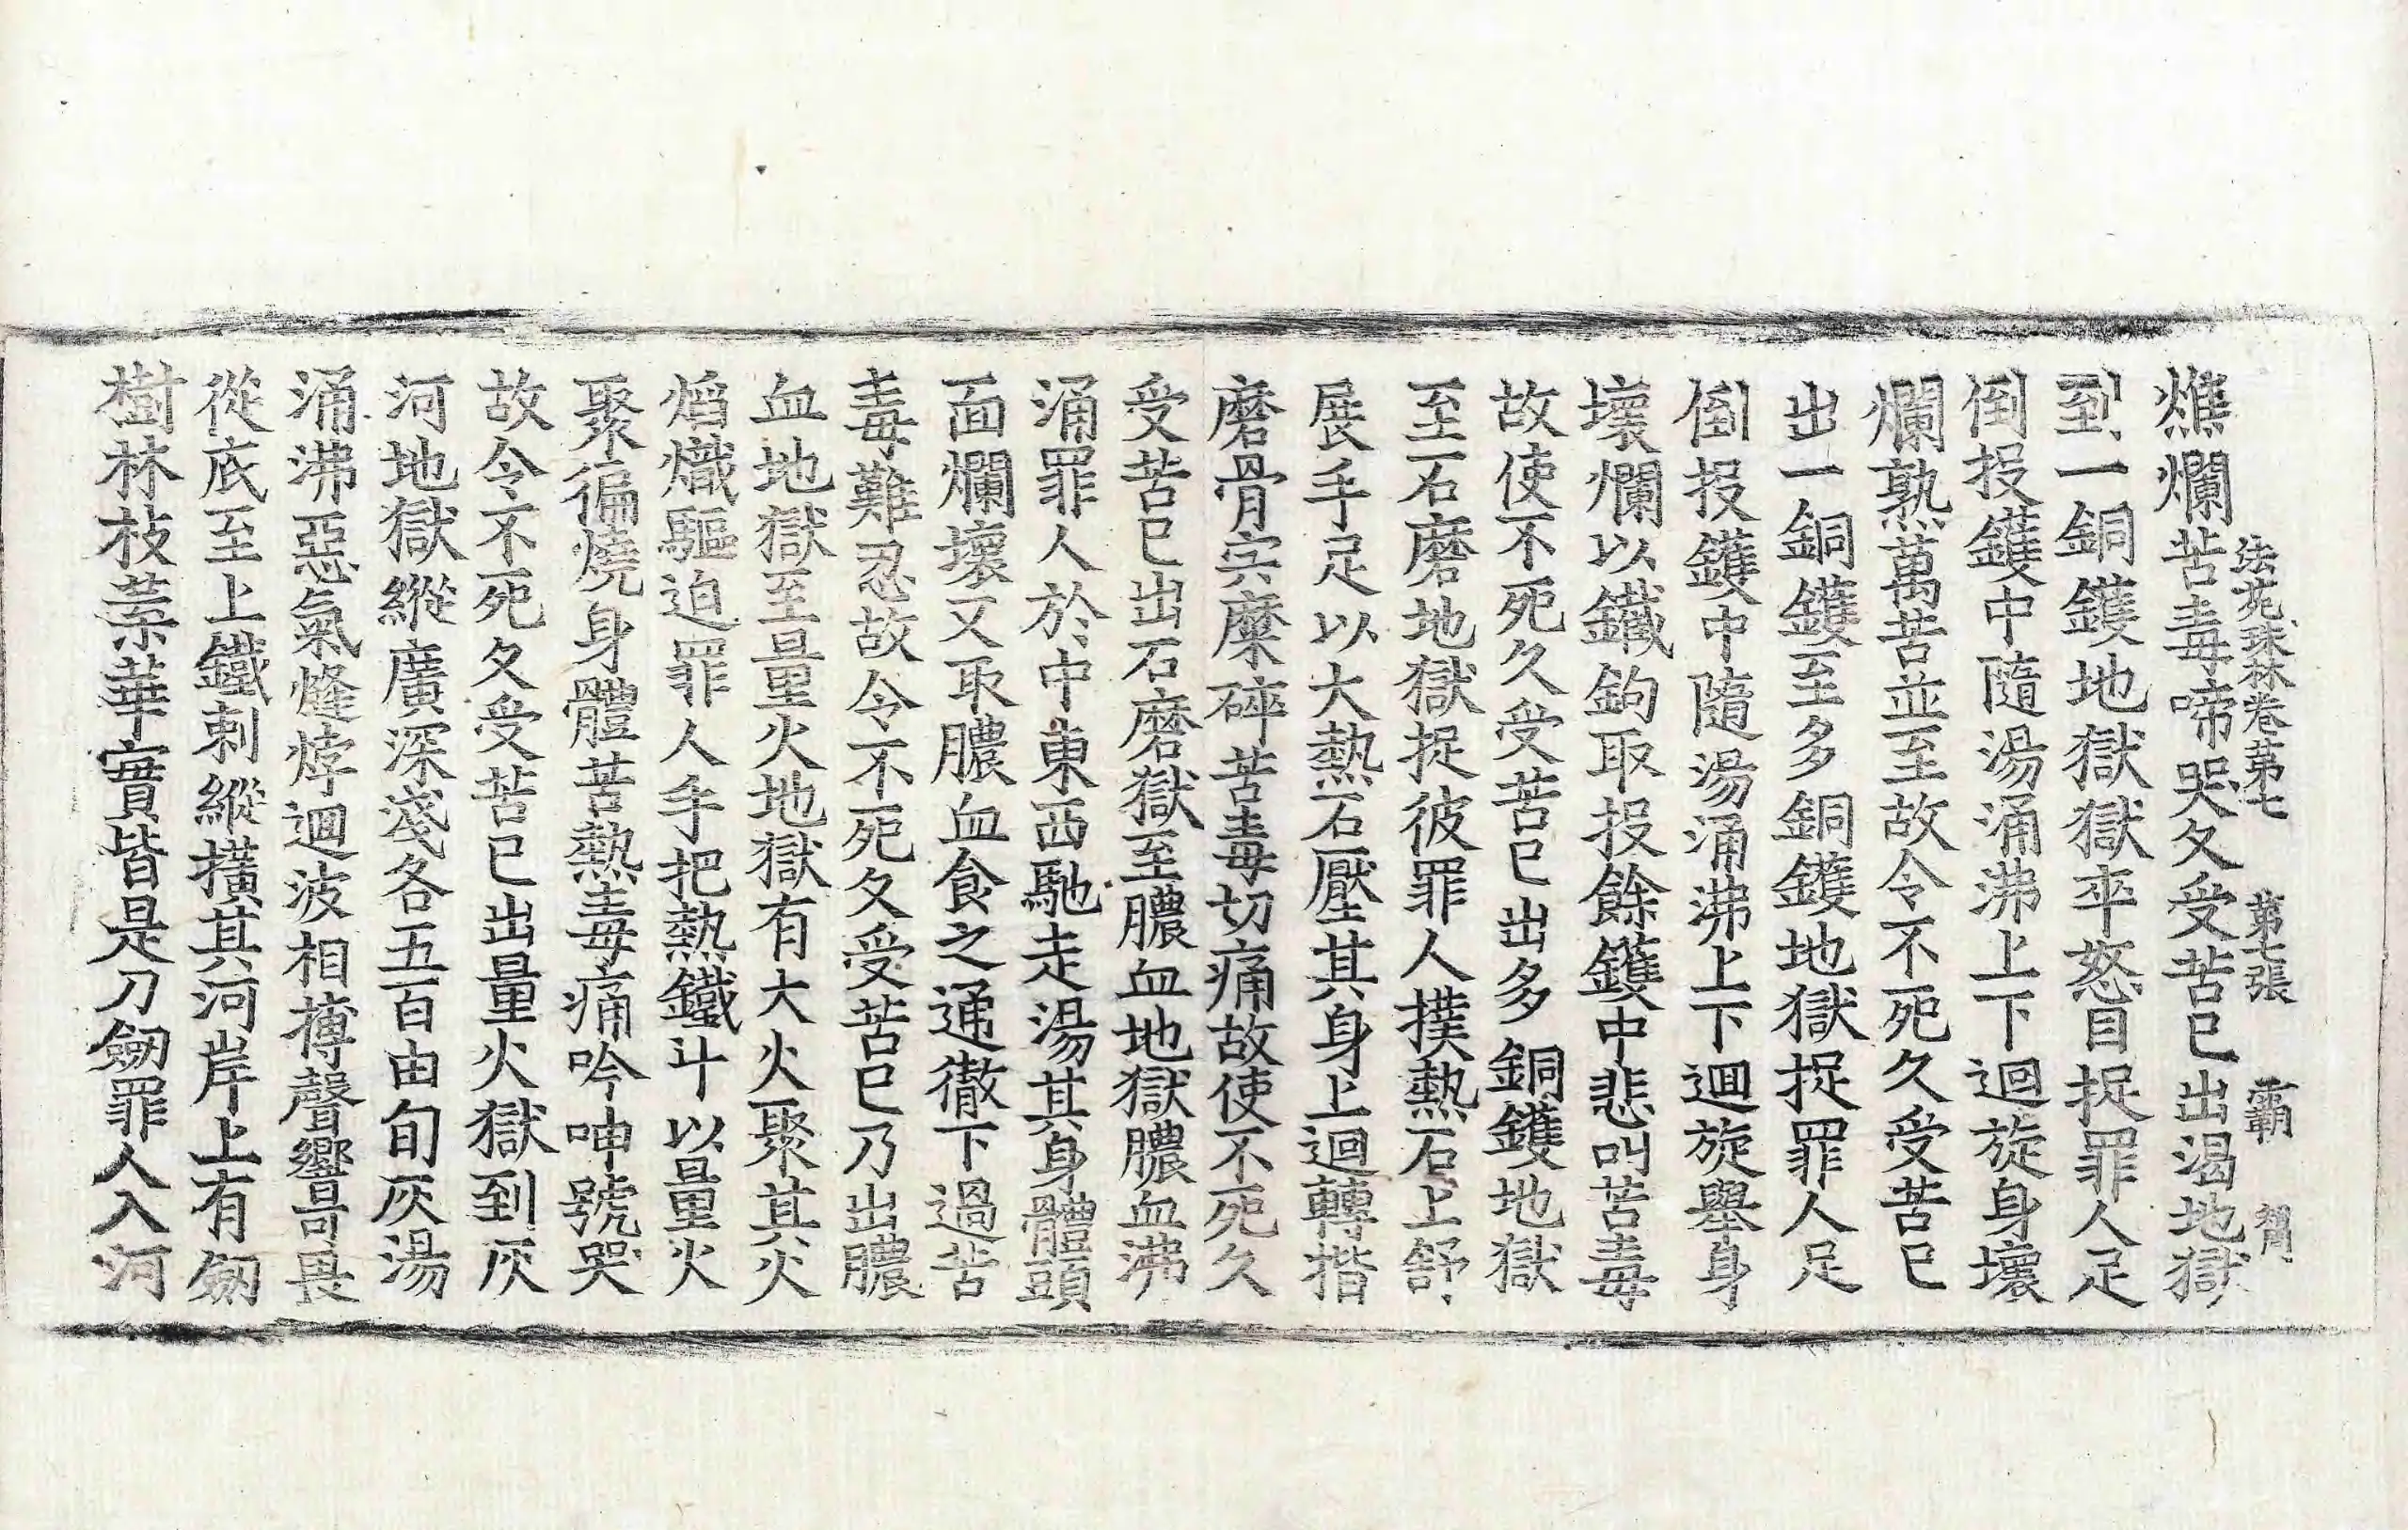 法苑珠林卷第七 第七張 霸
燋爛苦毒啼哭久受苦已出渴地獄
到一銅鑊地獄獄卒怒目捉罪人足
倒投鑊中隨湯涌沸上下迴旋身壞
爛熟萬苦並至故令不死久受苦已
出一銅鑊至多銅鑊地獄捉罪人足
倒投鑊中隨湯涌沸上下迴旋舉身
壞爛以鐵鉤取投餘鑊中悲叫苦毒
故使不死久受苦已出多銅鑊地獄
至石磨地獄捉彼罪人撲熱石上舒
展手足以大熱石壓其身上迴轉揩
磨骨肉糜碎苦毒切痛故使不死久
受苦已出石磨獄至膿血地獄膿血沸
涌罪人於中東西馳走湯其身體頭
面爛壞又取膿血食之通徹下過苦
毒難忍故令不死久受苦已乃出膿
血地獄至量火地獄有大火聚其火
焰熾驅迫罪人手把熱鐵斗以量火
聚徧燒身體苦熱毒痛吟呻號哭
故令不死久受苦已出量火獄到灰
河地獄縱廣深淺各五百由旬灰湯
涌沸惡氣熢㶿迴波相搏聲響可畏
從底至上鐵刺縱橫其河岸上有劒
樹林枝葉華實皆是刀劒罪人入河